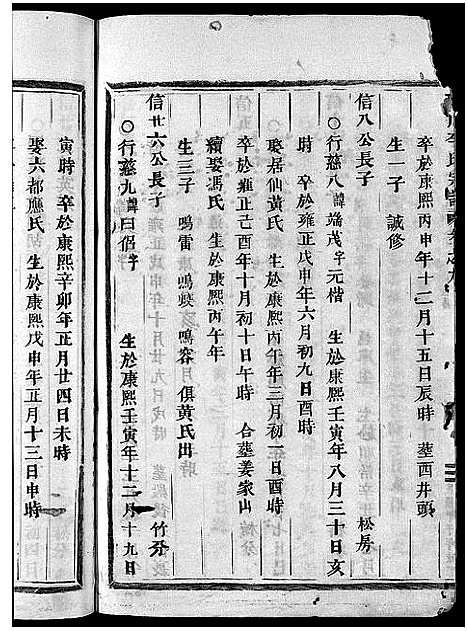 李氏宗譜卷之九
卒於康熙丙申年十二月十五日辰時 葬西井頭
生一子 誠修
信八公長子 松房
○行慈八諱端茂字元楷 生於康熙壬寅年八月三十日亥
時 卒於雍正戊申年六月初九日酉時
娶居仙黃氏 生於康熙丙午年三月初一日酉時
卒於雍正己酉年十月初十日午時 合葬姜家山
續娶馮氏 生於康熙丙午年
生三子 鳴雷 鳴蛟 鳴容 俱黃氏出
信廿六公長子 竹分
○行慈九諱曰侶字 生於康熙壬寅年十二月十九日
寅時 卒於康熙辛卯年正月廿四日未時
娶六都應氏 生於康熙戊申年正月十三日申時